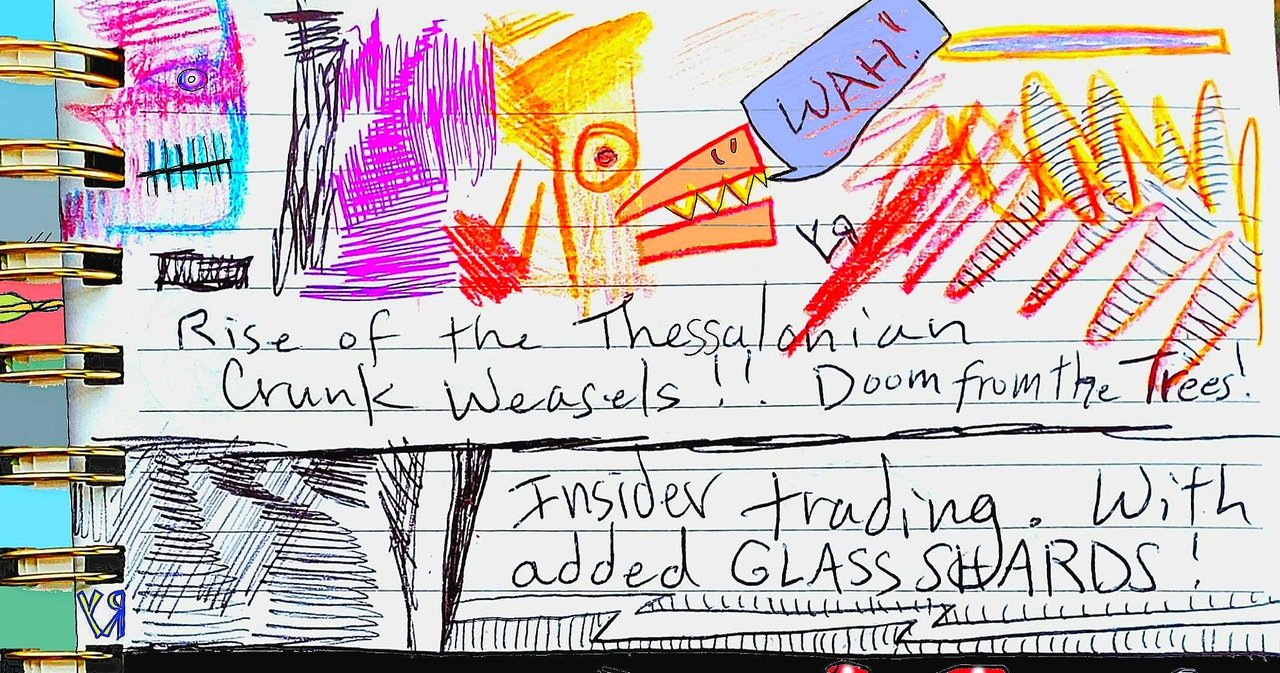 WAH!"
VR
Rise of the Thessalonian
Crunk Weasels!! Doom from the Trees!
Insider trading. With
added GLASS SHARDS!
VR